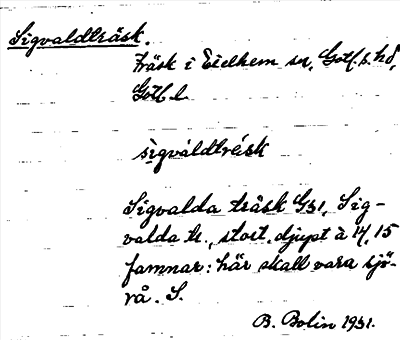 Sigvaldträsk.
Träsk i Eidelhem sn, Gotl. s. hd,
Gotl. l.
sìgváldtrésk
Sigvalda träsk G31, Sig-
valda tr., stort, djupt à 14, 15
famnar: här skall vara sjö-
rå. S.
B. Bolin 1931.